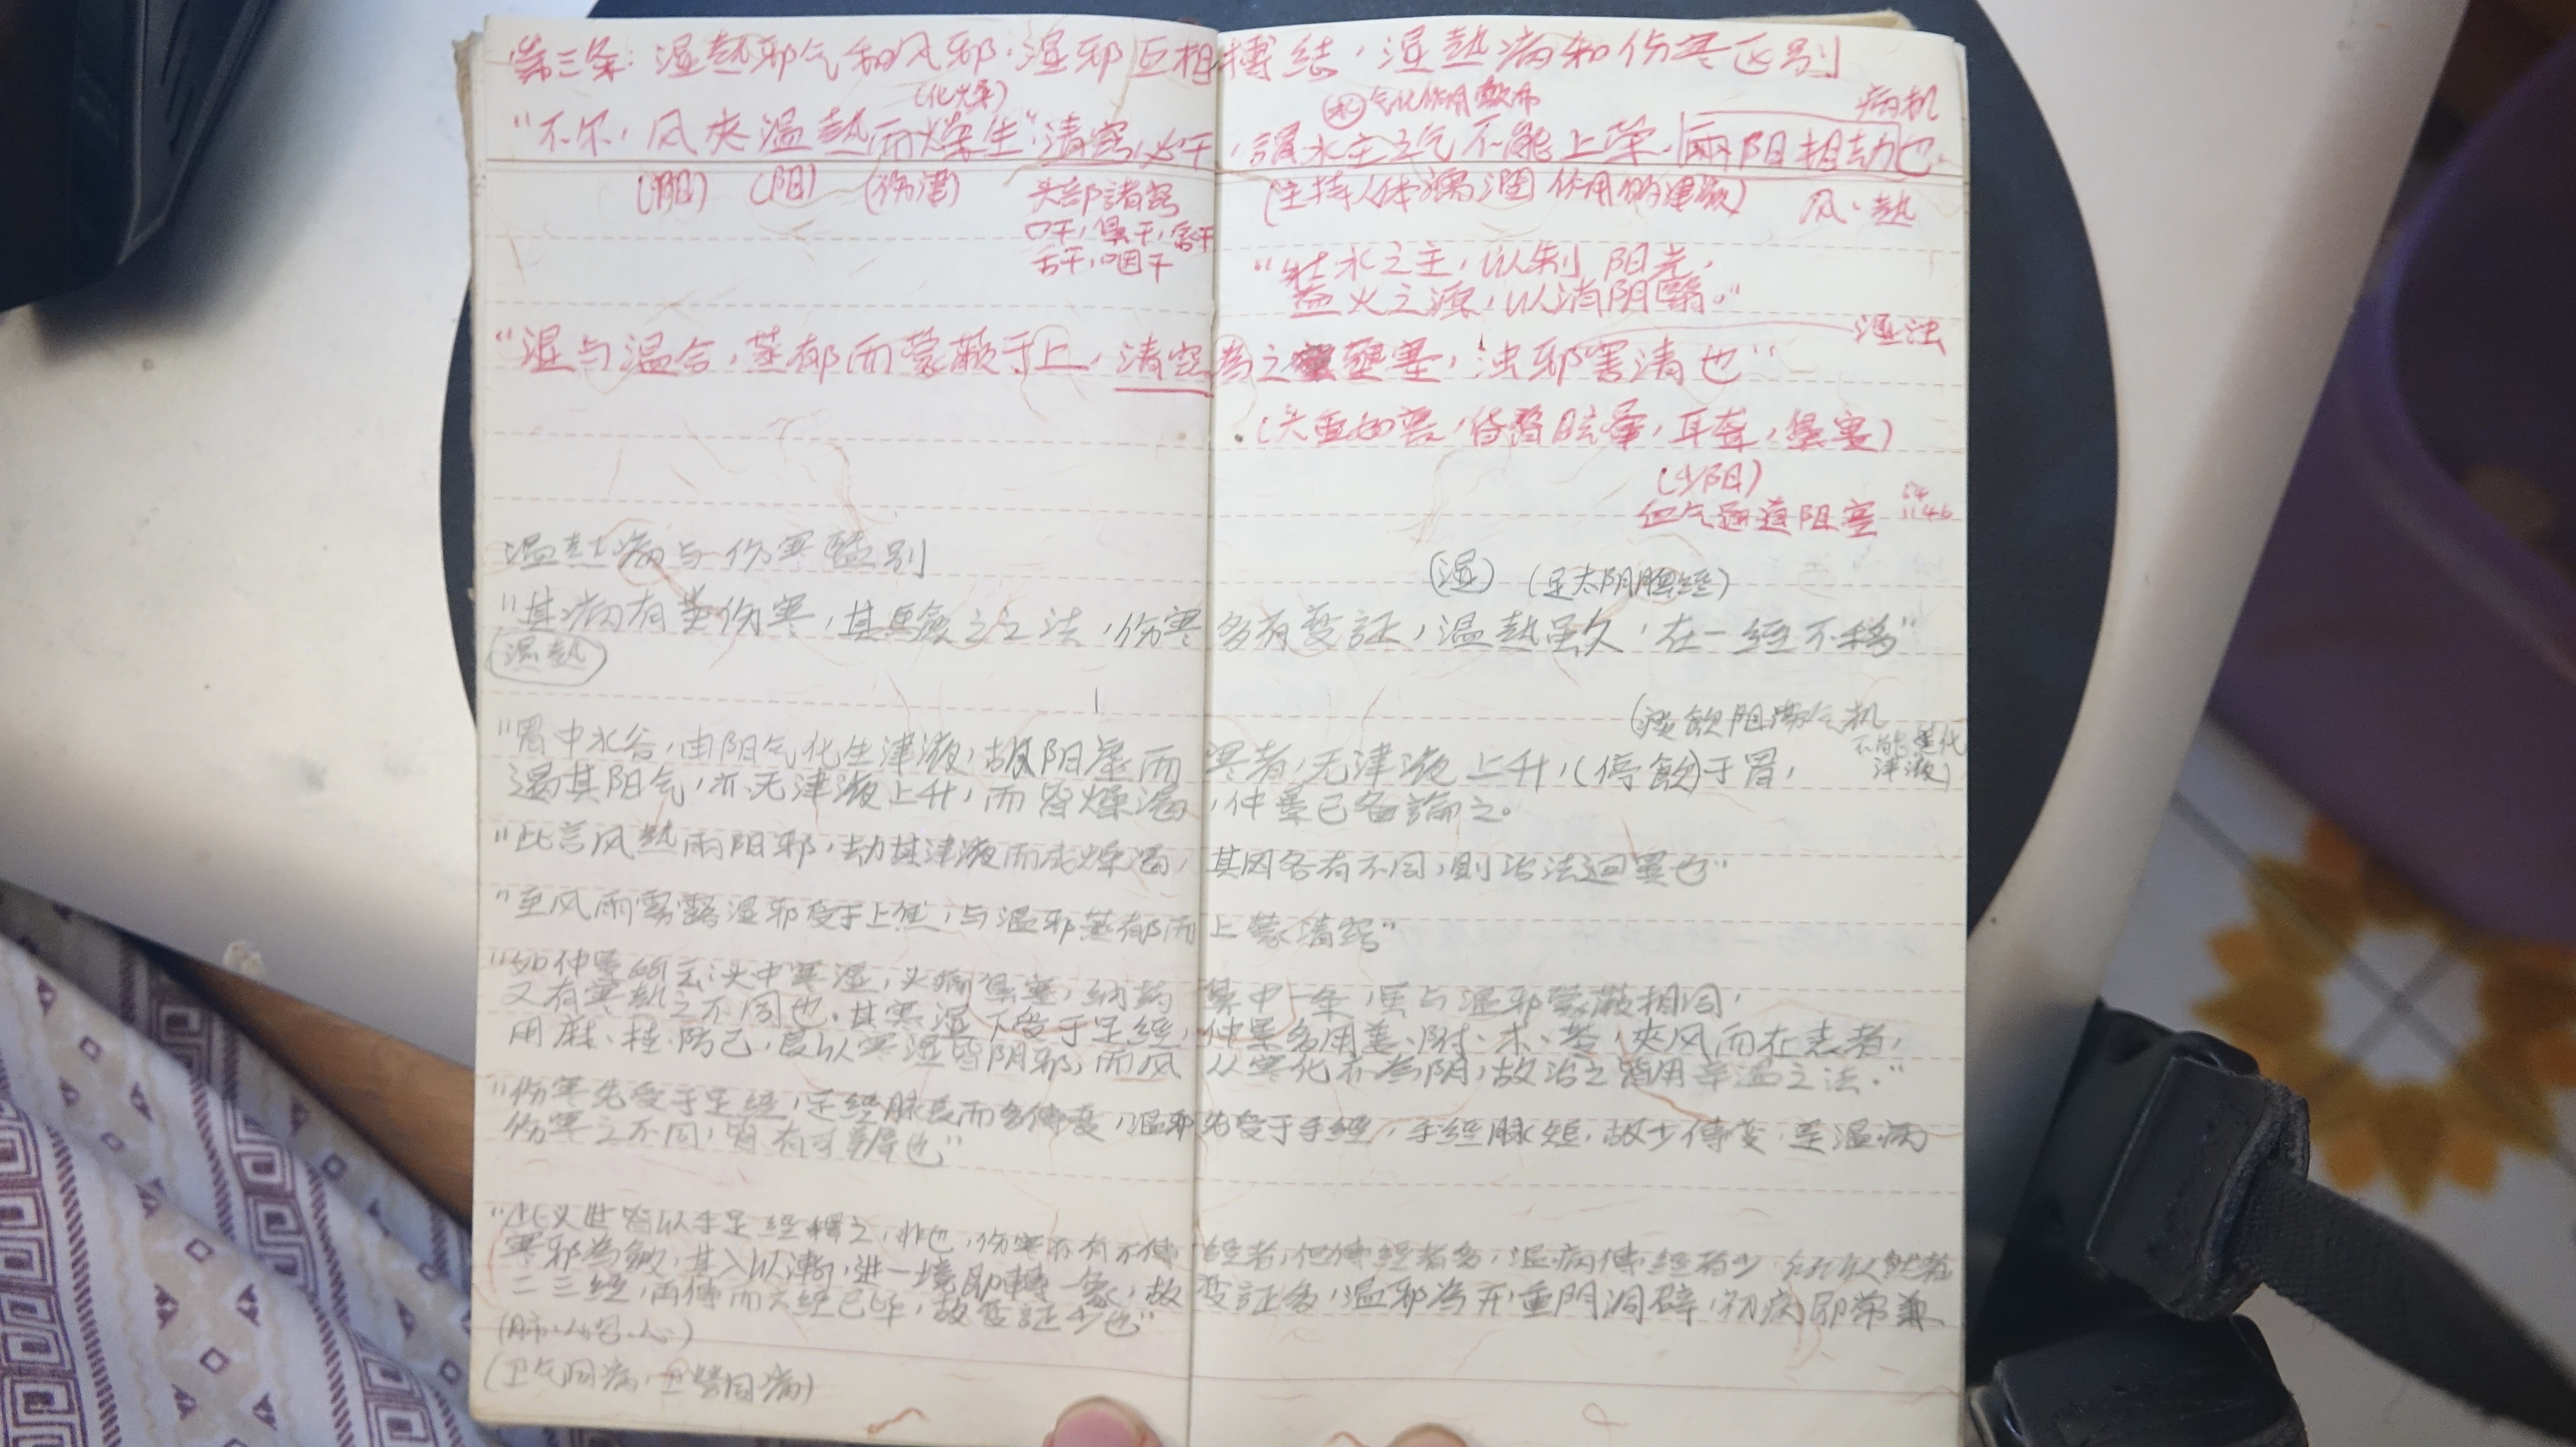 第三条：湿熱邪气和风邪，湿邪互相搏结，湿熱病和伤寒区别
(化燥)
(水)气化作用敷布
病机
"不尔，风夾温熱而燥生"清窍必干，謂水主之气不能上荣，兩阳相劫也
(阳) (阳) (伤津)
头部諸窍
口干，鼻干，唇干
舌干，咽干
(主持人体濡潤作用的津液)
风、熱
"壮水之主，以制阳光，
益火之源，以消阴翳。"
湿浊
"湿与温合，蒸郁而蒙蔽于上，清窍為之壅塞，浊邪害清也"
(头重如裹，昏瞀眩暈，耳聋，鼻塞)
(少阳)
血气通道阻塞
温熱病与伤寒鑒别
(湿) (足太阴脾經)
"其病有類伤寒，其驗之之法，伤寒多有变証，温熱虽久，在一經不移"
温熱
(痰飲阻滞气机
不能運化
津液)
"胃中水谷，由阳气化生津液，故阳虚而寒者，无津液上升，(停飲)于胃，
遏其阳气，亦无津液上升，而皆燥渴，仲景已备論之。
"此言风熱兩阳邪，劫其津液而成燥渴，其因各有不同，則治法迥異也"
"至风雨雾露湿邪受于上焦，与温邪蒸郁而上蒙清窍"
"如仲景所云，头中寒湿，头痛鼻塞，纳药鼻中一条，虽与湿邪蒙蔽相同，
又有寒熱之不同也。其寒湿下受于足經，仲景多用姜、附、术、苓，夾风而在表者，
用麻、桂、防己，良以寒湿皆阴邪，而风从寒化亦為阴，故治之皆用辛温之法。"
"伤寒先受于足經，足經脉長而多傳变，温邪先受于手經，手經脉短，故少傳变，是温病
伤寒之不同，皆有可辨也"
"此义世皆以手足經釋之，非也，伤寒亦有不傳經者，但傳經者多，温病傳經者少，所以然者
寒邪為斂，其入以漸，进一境即轉一象，故变証多，温邪為开，重門洞辟，初病即常兼
二三經，再傳而六經已毕，故变証少也"
(肺、心包、心)
(卫气同病，卫营同病)